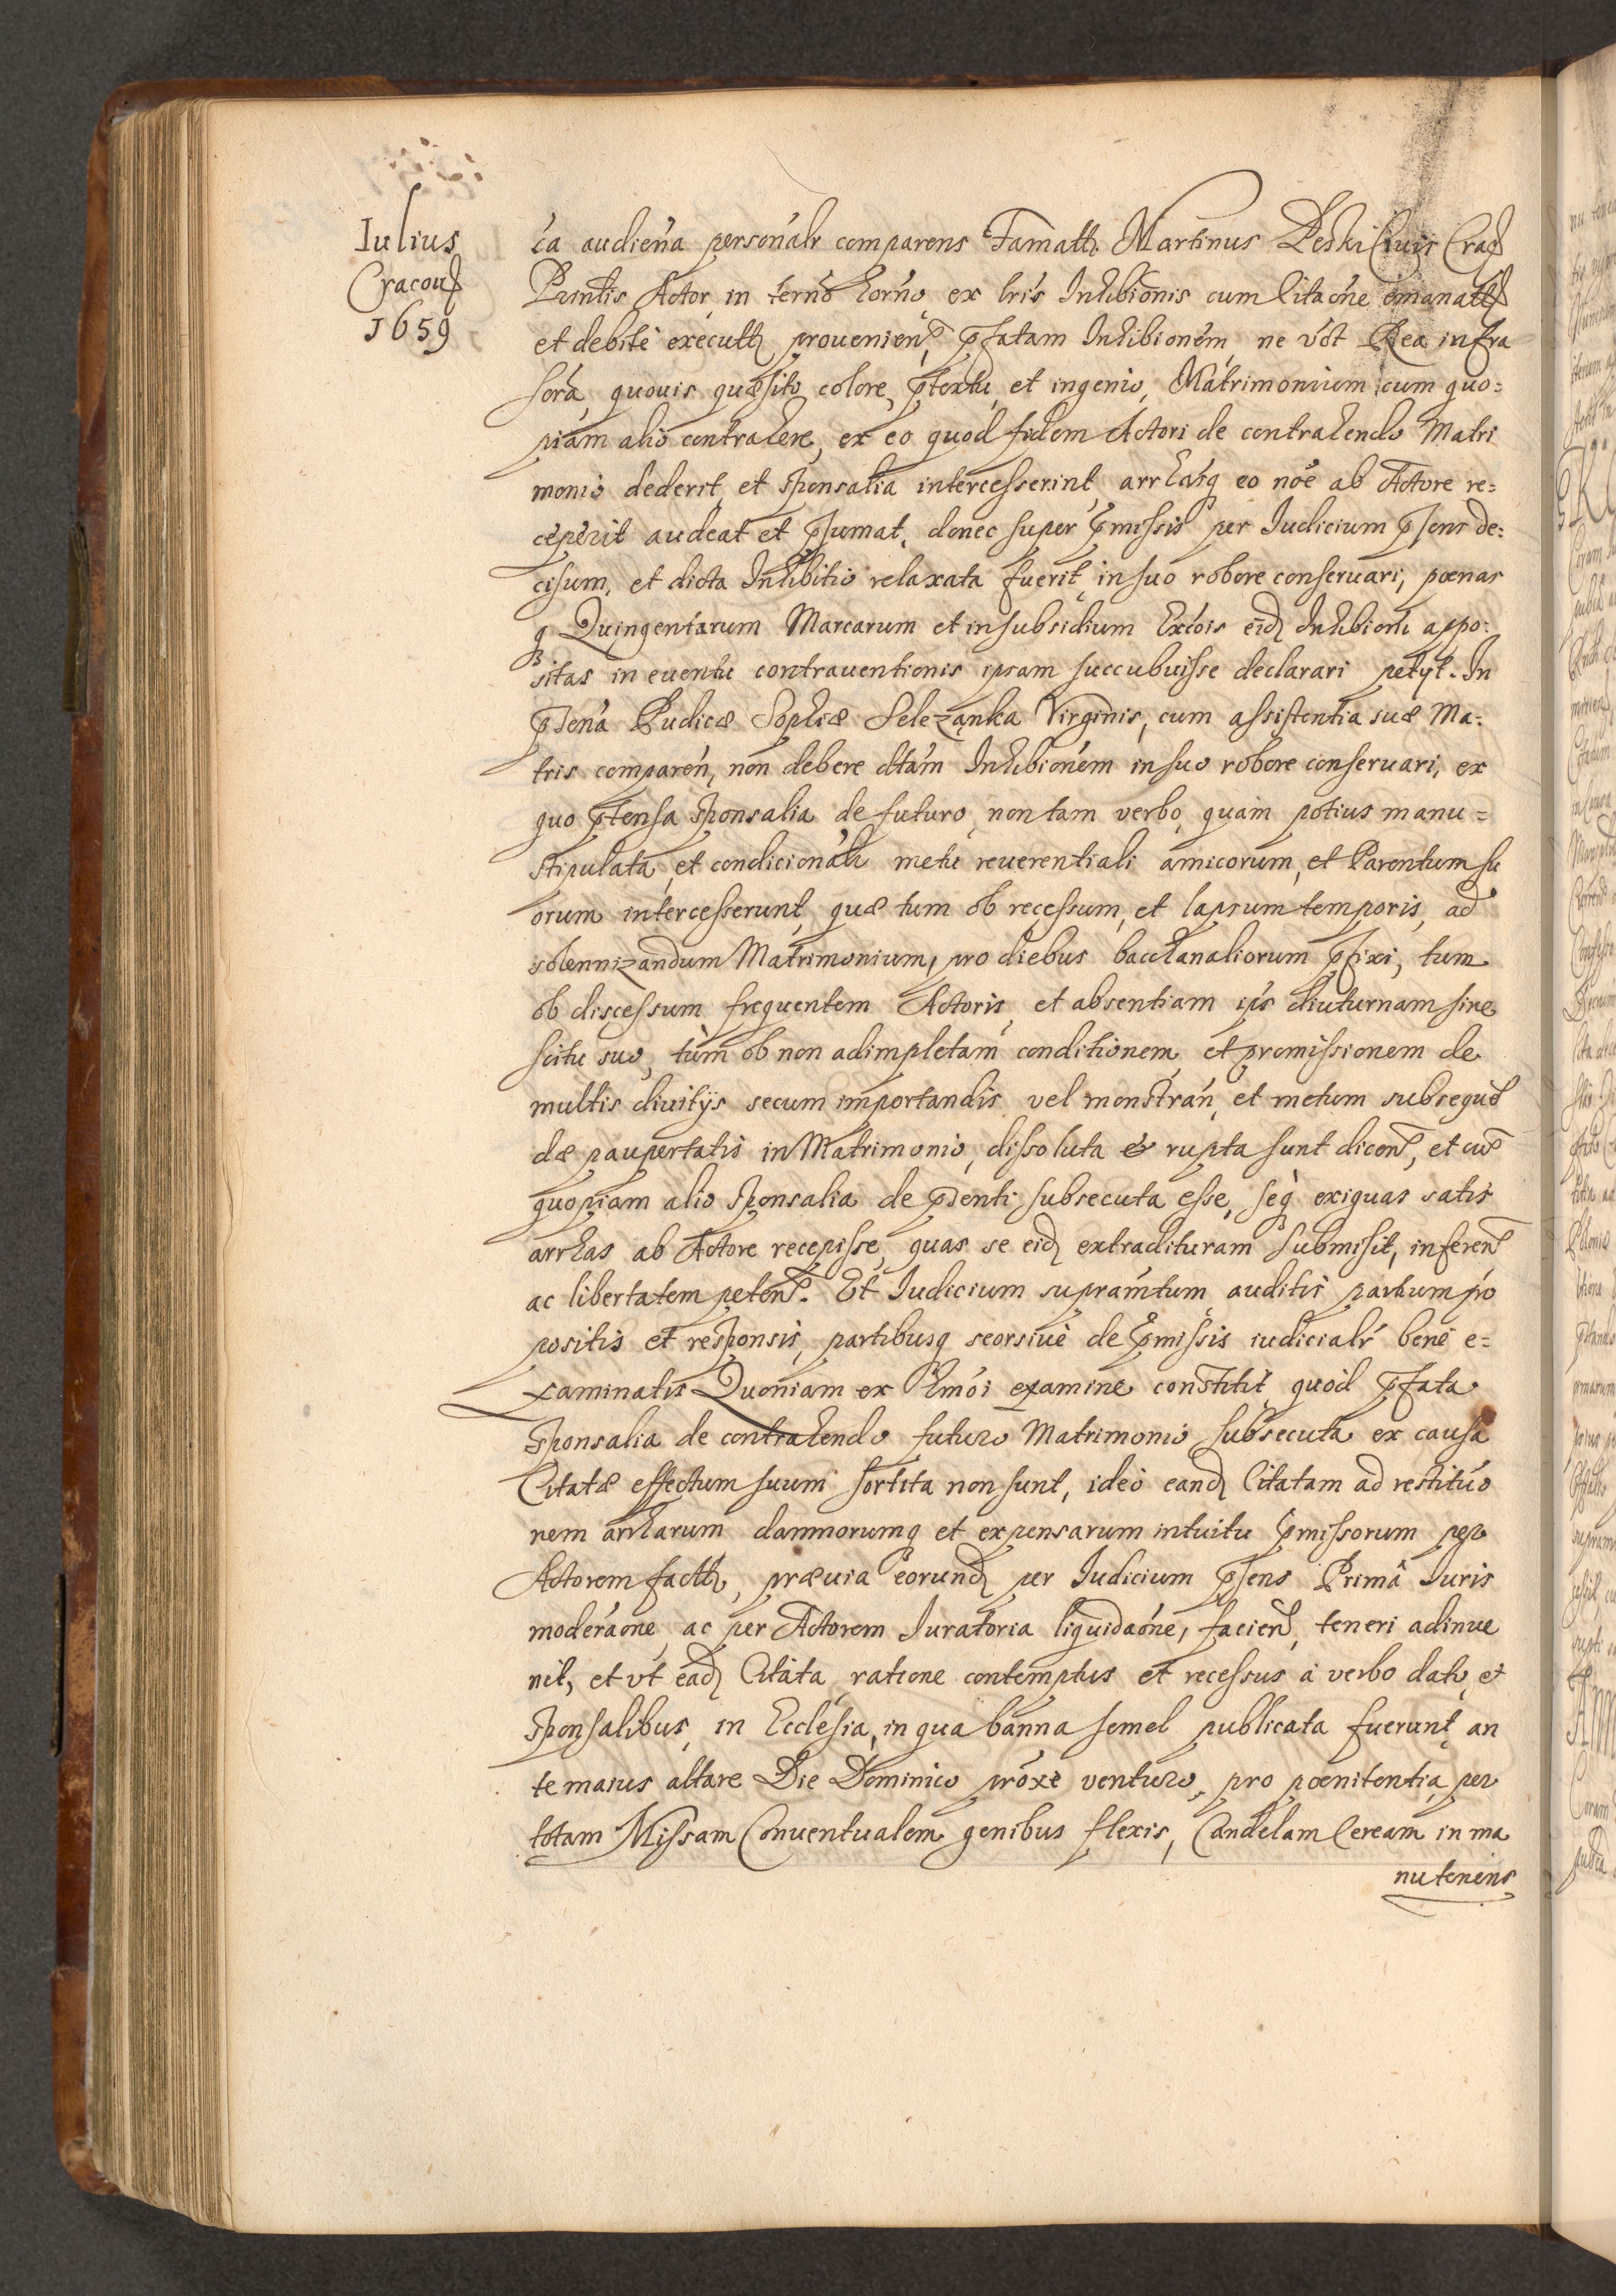 Iulius
Cracoü
1659
ca audiena personalr comparens Famatt. Martinus Peski Ciuis Crac
Principalis Actor in termo horno ex lris Inhibionis cum Citaone emanatt
et debite executt prouenien, pfatam Inhibionem ne vdt Rea infra
sora, quouis quæsito colore, ptextu et ingenio, Matrimonium cum quo=
piam alio contrahere, ex eo quod fidem Actori de contrahendo Matri
monio dederit et sponsalia intercesserint, arrhasq eo noe ab Actore re=
ceperit audeat et psumat, donec super pmissis per Iudicium psens de=
cisum, et dicta Inhibitio relaxata fuerit, in suo robore conseruari, pœnas
q Quingentarum Marcarum et in subsidium Excois eid Inhibioni appo=
sitas in euentu contrauentionis ipsam succubuisse declarari petyt. In
psena Pudicæ Sophiæ Selezanka Virginis, cum assistentia suæ Ma=
tris comparen, non debere dtam Inhibionem in suo robore conseruari, ex
quo ptensa sponsalia de futuro, non tam verbo, quam potius manu=
stipulata, et condicionalr metu reuerentiali amicorum, et Parentum su
orum intercesserunt, quæ tum ob recessum, et lapsum temporis, ad
solennizandum Matrimonium, pro diebus bacchanaliorum pfixi, tum
ob discessum frequentem Actoris, et absentiam ips diuturnam sine
scitu suo, tùm ob non adimpletam conditionem, et promissionem de
multis diuitijs secum importandis, vel monstran, et metum subsequen
dæ paupertatis in Matrimonio, dissoluta & rupta sunt dicen, et cum
quopiam alio sponsalia de psenti subsecuta esse, seq exiguas satis
arrhas ab Actore recepisse, quas se eid extradituram submisit, inferen
ac libertatem peten. Et Iudicium supramtum auditis partium pro
positis et responsis, partibusq seorsiuè de pmissis iudicialr bene e=
xaminatis Quoniam ex hmoi examine constitit quod pfata
sponsalia de contrahendo futuro Matrimonio subsecuta ex causa
Citatæ effectum suum sortita non sunt, ideo eand Citatam ad restituo
nem arrharum damnorumq et expensarum intuitu pmissorum per
Actorem factt, præuia eorund per Iudicium psens Primâ Iuris
moderaone, ac per Actorem Iuratoria liquidaone, facien, teneri adinue
nit, et vt ead Citata ratione contemptus et recessus à verbo dato, et
sponsalibus, in Ecclesia, in qua banna semel publicata fuerunt, an
te maius altare Die Dominico proxe venturo, pro pœnitentia, per
totam Missam Conuentualem genibus flexis, Candelam Ceream in ma
nu tenens